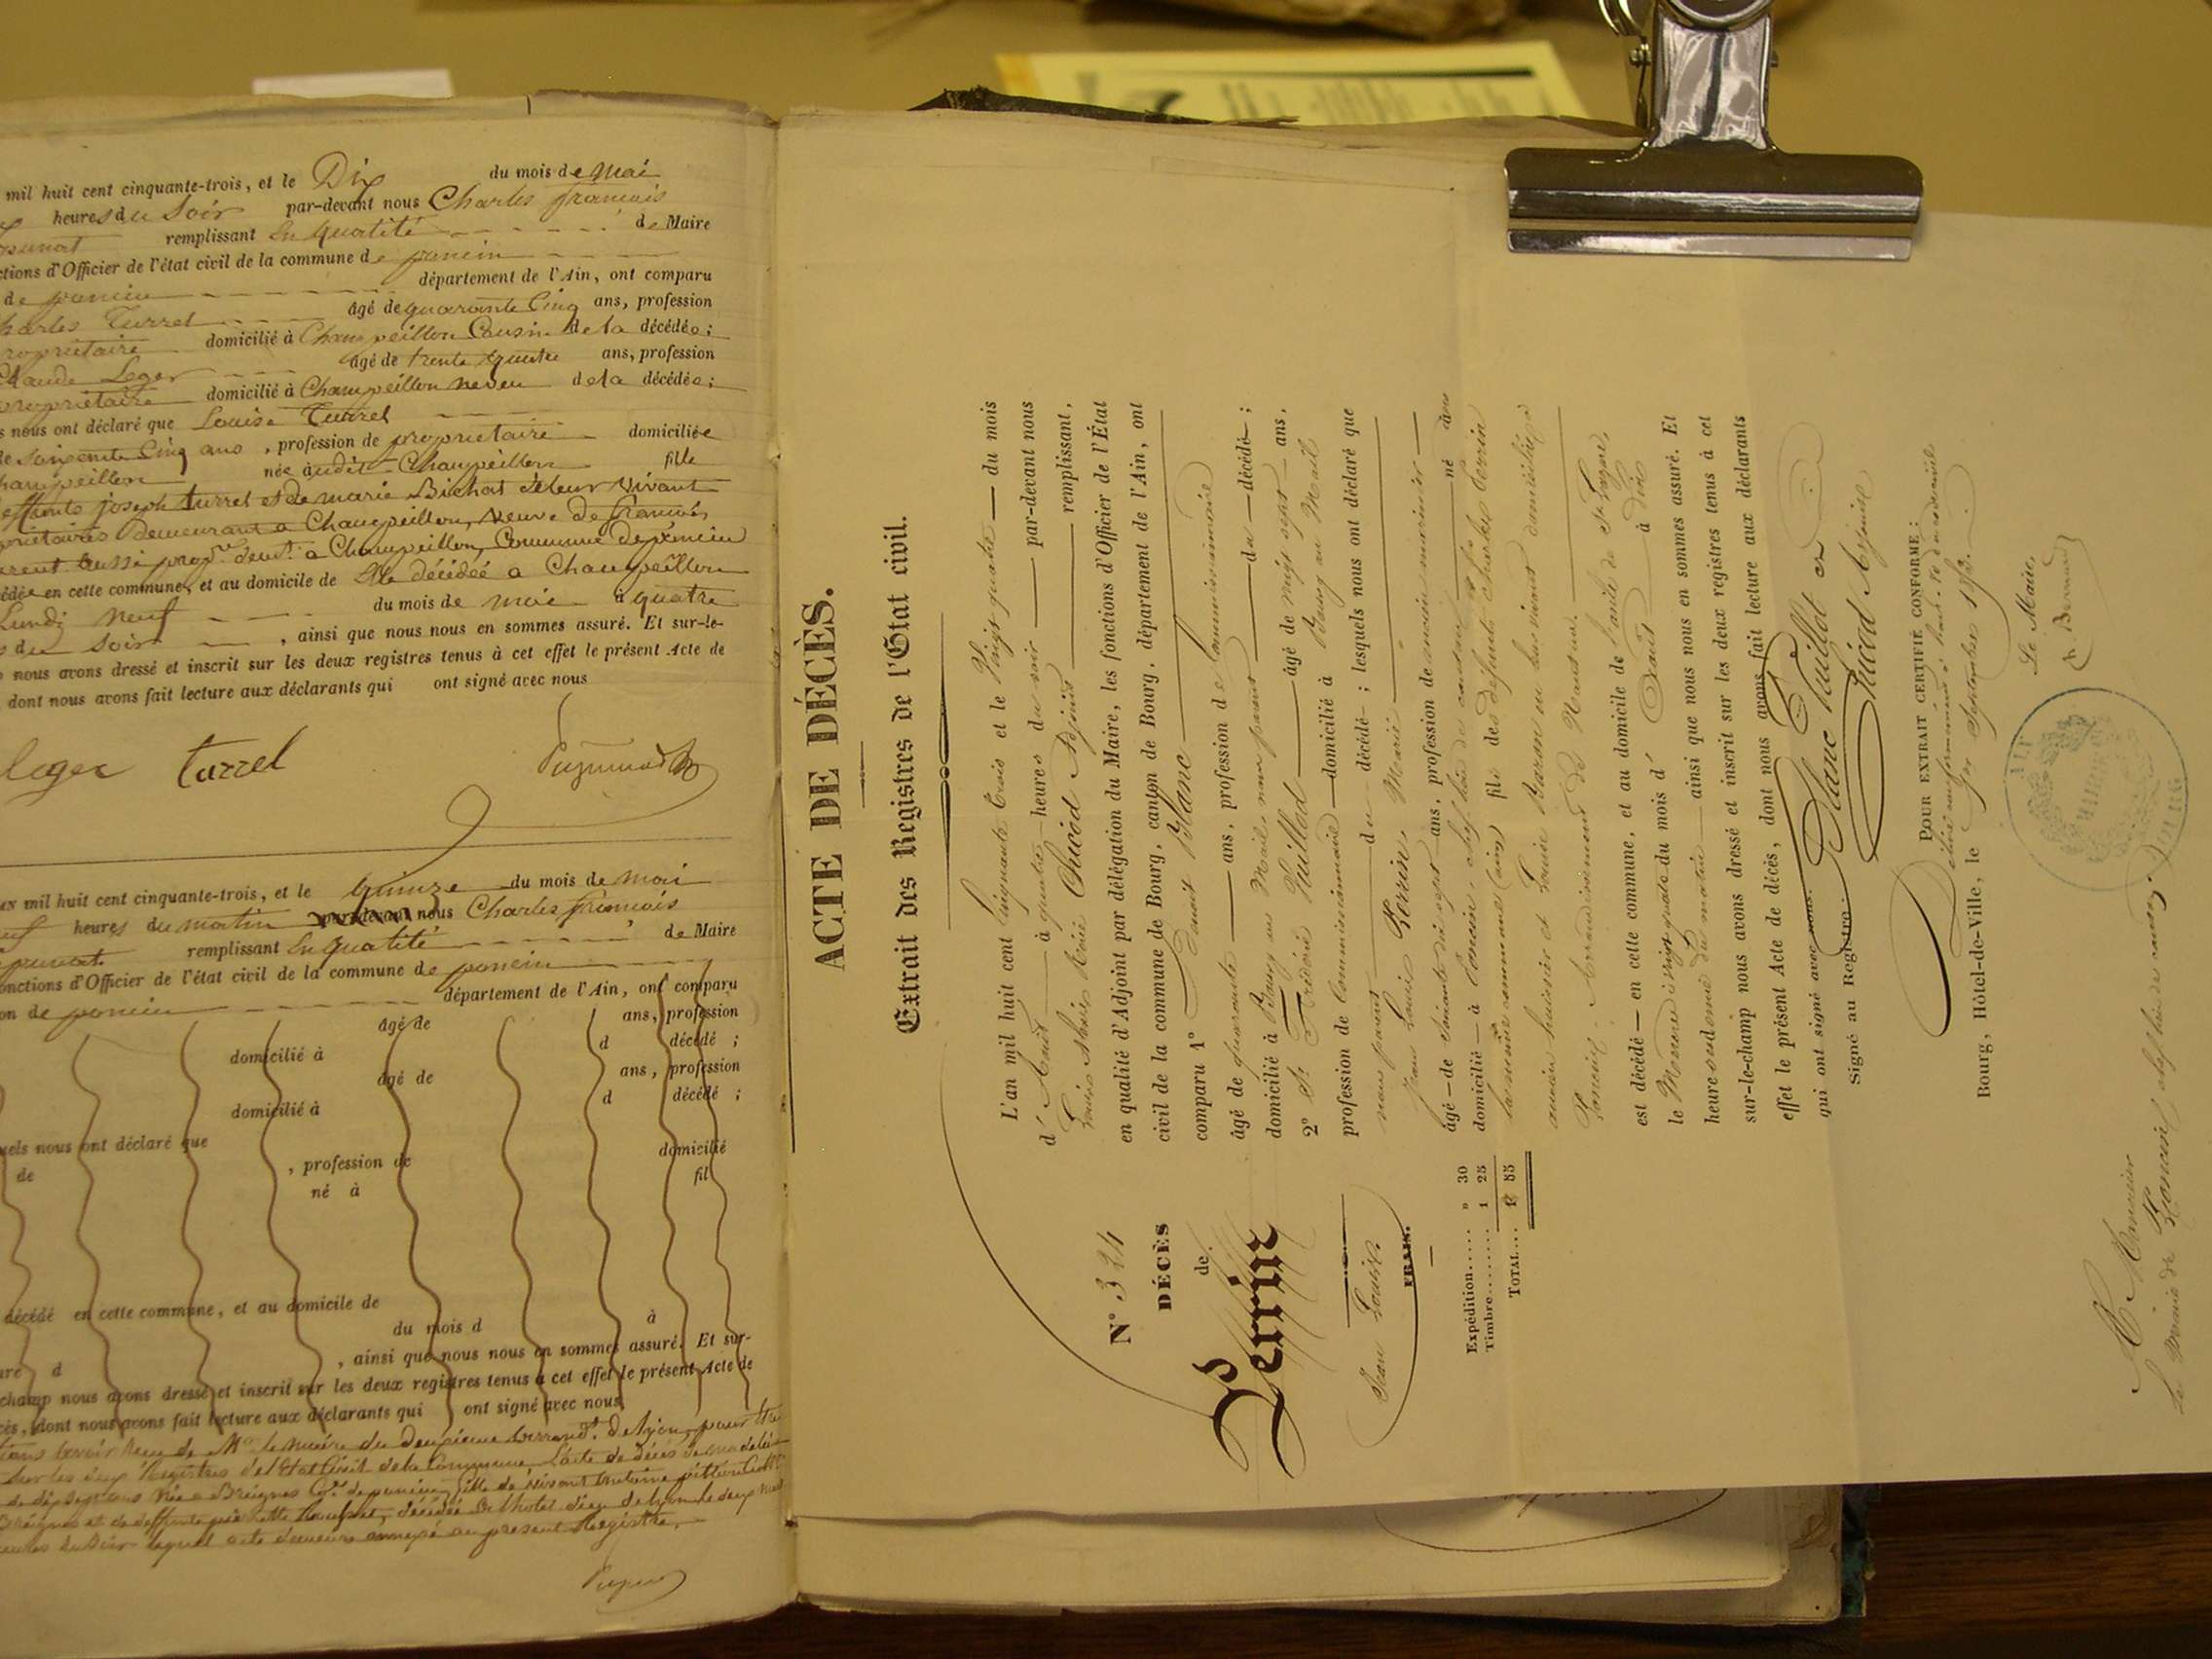 mil huit cent cinquante-trois, et le Dix du mois de mai
heures du Soir par-devant nous Charles françois
remplissant En qualité de Maire
ctions d'Officier de l'état civil de la commune de poncin
de poncin département de l'Ain, ont comparu
harles Turrel âgé de quarante Cinq ans, profession
ropriétaire domicilié à Champeillon Cousin de la décédée;
Claude Leger âgé de trente quatre ans, profession
propriétaire domicilié à Champeillon neveu de la décédée;
s nous ont déclaré que Louise Turrel
de soixante Cinq ans, profession de propriétaire domiciliée
hampeillon née audit Champeillon fille
deffunts joseph turrel et de marie Bichat de leur Vivant
priétaires demeurant a Champeillon, Veuve de francois
aussi prop.re demt. a Champeillon, Commune de poncin
édée en cette commune, et au domicile de Elle décédée a Champeillon
Lundi neuf du mois de mai à quatre
s du soir, ainsi que nous nous en sommes assuré. Et sur-le-
p nous avons dressé et inscrit sur les deux registres tenus à cet effet le présent Acte de
dont nous avons fait lecture aux déclarants qui ont signé avec nous
leger turrel
ux mil huit cent cinquante-trois, et le Quinze du mois de mai
heures du matin par-devant nous Charles françois
remplissant En qualité de Maire
onctions d'Officier de l'état civil de la commune de poncin
on de poncin département de l'Ain, ont comparu
âgé de ans, profession
domicilié à d décédé ;
âgé de ans, profession
domicilié à d décédé ;
uels nous ont déclaré que
de , profession de domicilié
né à fil
décédé en cette commune, et au domicile de
du mois d à
ure d , ainsi que nous nous en sommes assuré. Et sur-
champ nous avons dressé et inscrit sur les deux registres tenus à cet effet le présent Acte de
cès, dont nous avons fait lecture aux déclarants qui ont signé avec nous
avoir Reçu de Mr le maire du Deuxième arrond.t de lyon, pour être
sur les deux Registres de l'Etat Civil de la Commune L'acte de décès de
de dix sept ans Née a Breignes Cne de poncin, fille de vivant antoine
Breignes et de deffunte décédée à l'hotel dieu de lyon le deux mai
heures du Soir lequel acte demeure annexé au present Registre,
ACTE DE DÉCÈS.
Extrait des Registres de l'État civil.
N° 324
DÉCÈS
de
Perrin
Jean Louis.
FRAIS.
Expédition..... » 30
Timbre........ 1 25
TOTAL.... 1 55
L'an mil huit cent Cinquante trois et le Vingt quatre du mois
d'Août à quatre heures du soir par-devant nous
Louis Marie Chicod Adjoint remplissant,
en qualité d'Adjoint par délégation du Maire, les fonctions d'Officier de l'État
civil de la commune de Bourg, canton de Bourg, département de l'Ain, ont
comparu 1° Benoit Blanc
âgé de quarante ans, profession de Commissionnaire
domicilié à Bourg au Mail, non parent du décédé ;
2° Frédéric Vuillod âgé de vingt sept ans,
profession de Commissionnaire domicilié à Bourg au Mail
non parent du décédé ; lesquels nous ont déclaré que
Jean Louis Perrin Marie
âgé de soixante dix sept ans, profession de ancien né dans
domicilié à Poncin, chef lieu de canton
la même commune (Ain) fils des défunts Charles Perrin
ancien huissier et Louise de leur vivant domiciliés à
Poncin, Arrondissement de Nantua.
est décédé en cette commune, et au domicile de l'asile de St Lazare,
le Mercredi vingt quatre du mois d'Août à dix
heures et demie du matin ainsi que nous nous en sommes assuré. Et
sur-le-champ nous avons dressé et inscrit sur les deux registres tenus à cet
effet le présent Acte de décès, dont nous avons fait lecture aux déclarants
qui ont signé avec nous.
Signé au Registre : Blanc Vuillod et
Chicod Adjoint
POUR EXTRAIT CERTIFIÉ CONFORME :
Bourg, Hôtel-de-Ville, le 1er Septembre 1853.
Le Maire,
Bernard
A Monsieur
Le Maire de Poncin, chef lieu de canton